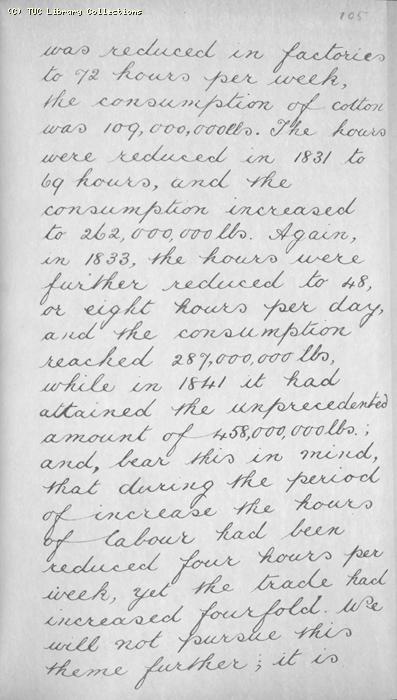 (C) TUC Library Collections
105
was reduced in factories
to 72 hours per week,
the consumption of cotton
was 109,000,000lbs. The hours
were reduced in 1831 to
69 hours, and the
consumption increased
to 262,000,000 lbs. Again,
in 1833, the hours were
further reduced to 48,
or eight hours per day,
and the consumption
reached 287,000,000 lbs,
while in 1841 it had
attained the unprecedented
amount of 458,000,000 lbs.;
and, bear this in mind,
that during the period
of increase the hours
of labour had been
reduced four hours per
week, yet the trade had
increased fourfold. We
will not pursue this
theme further; it is